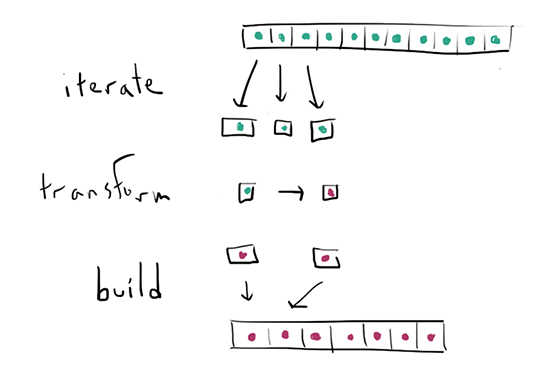 iterate
transform
build